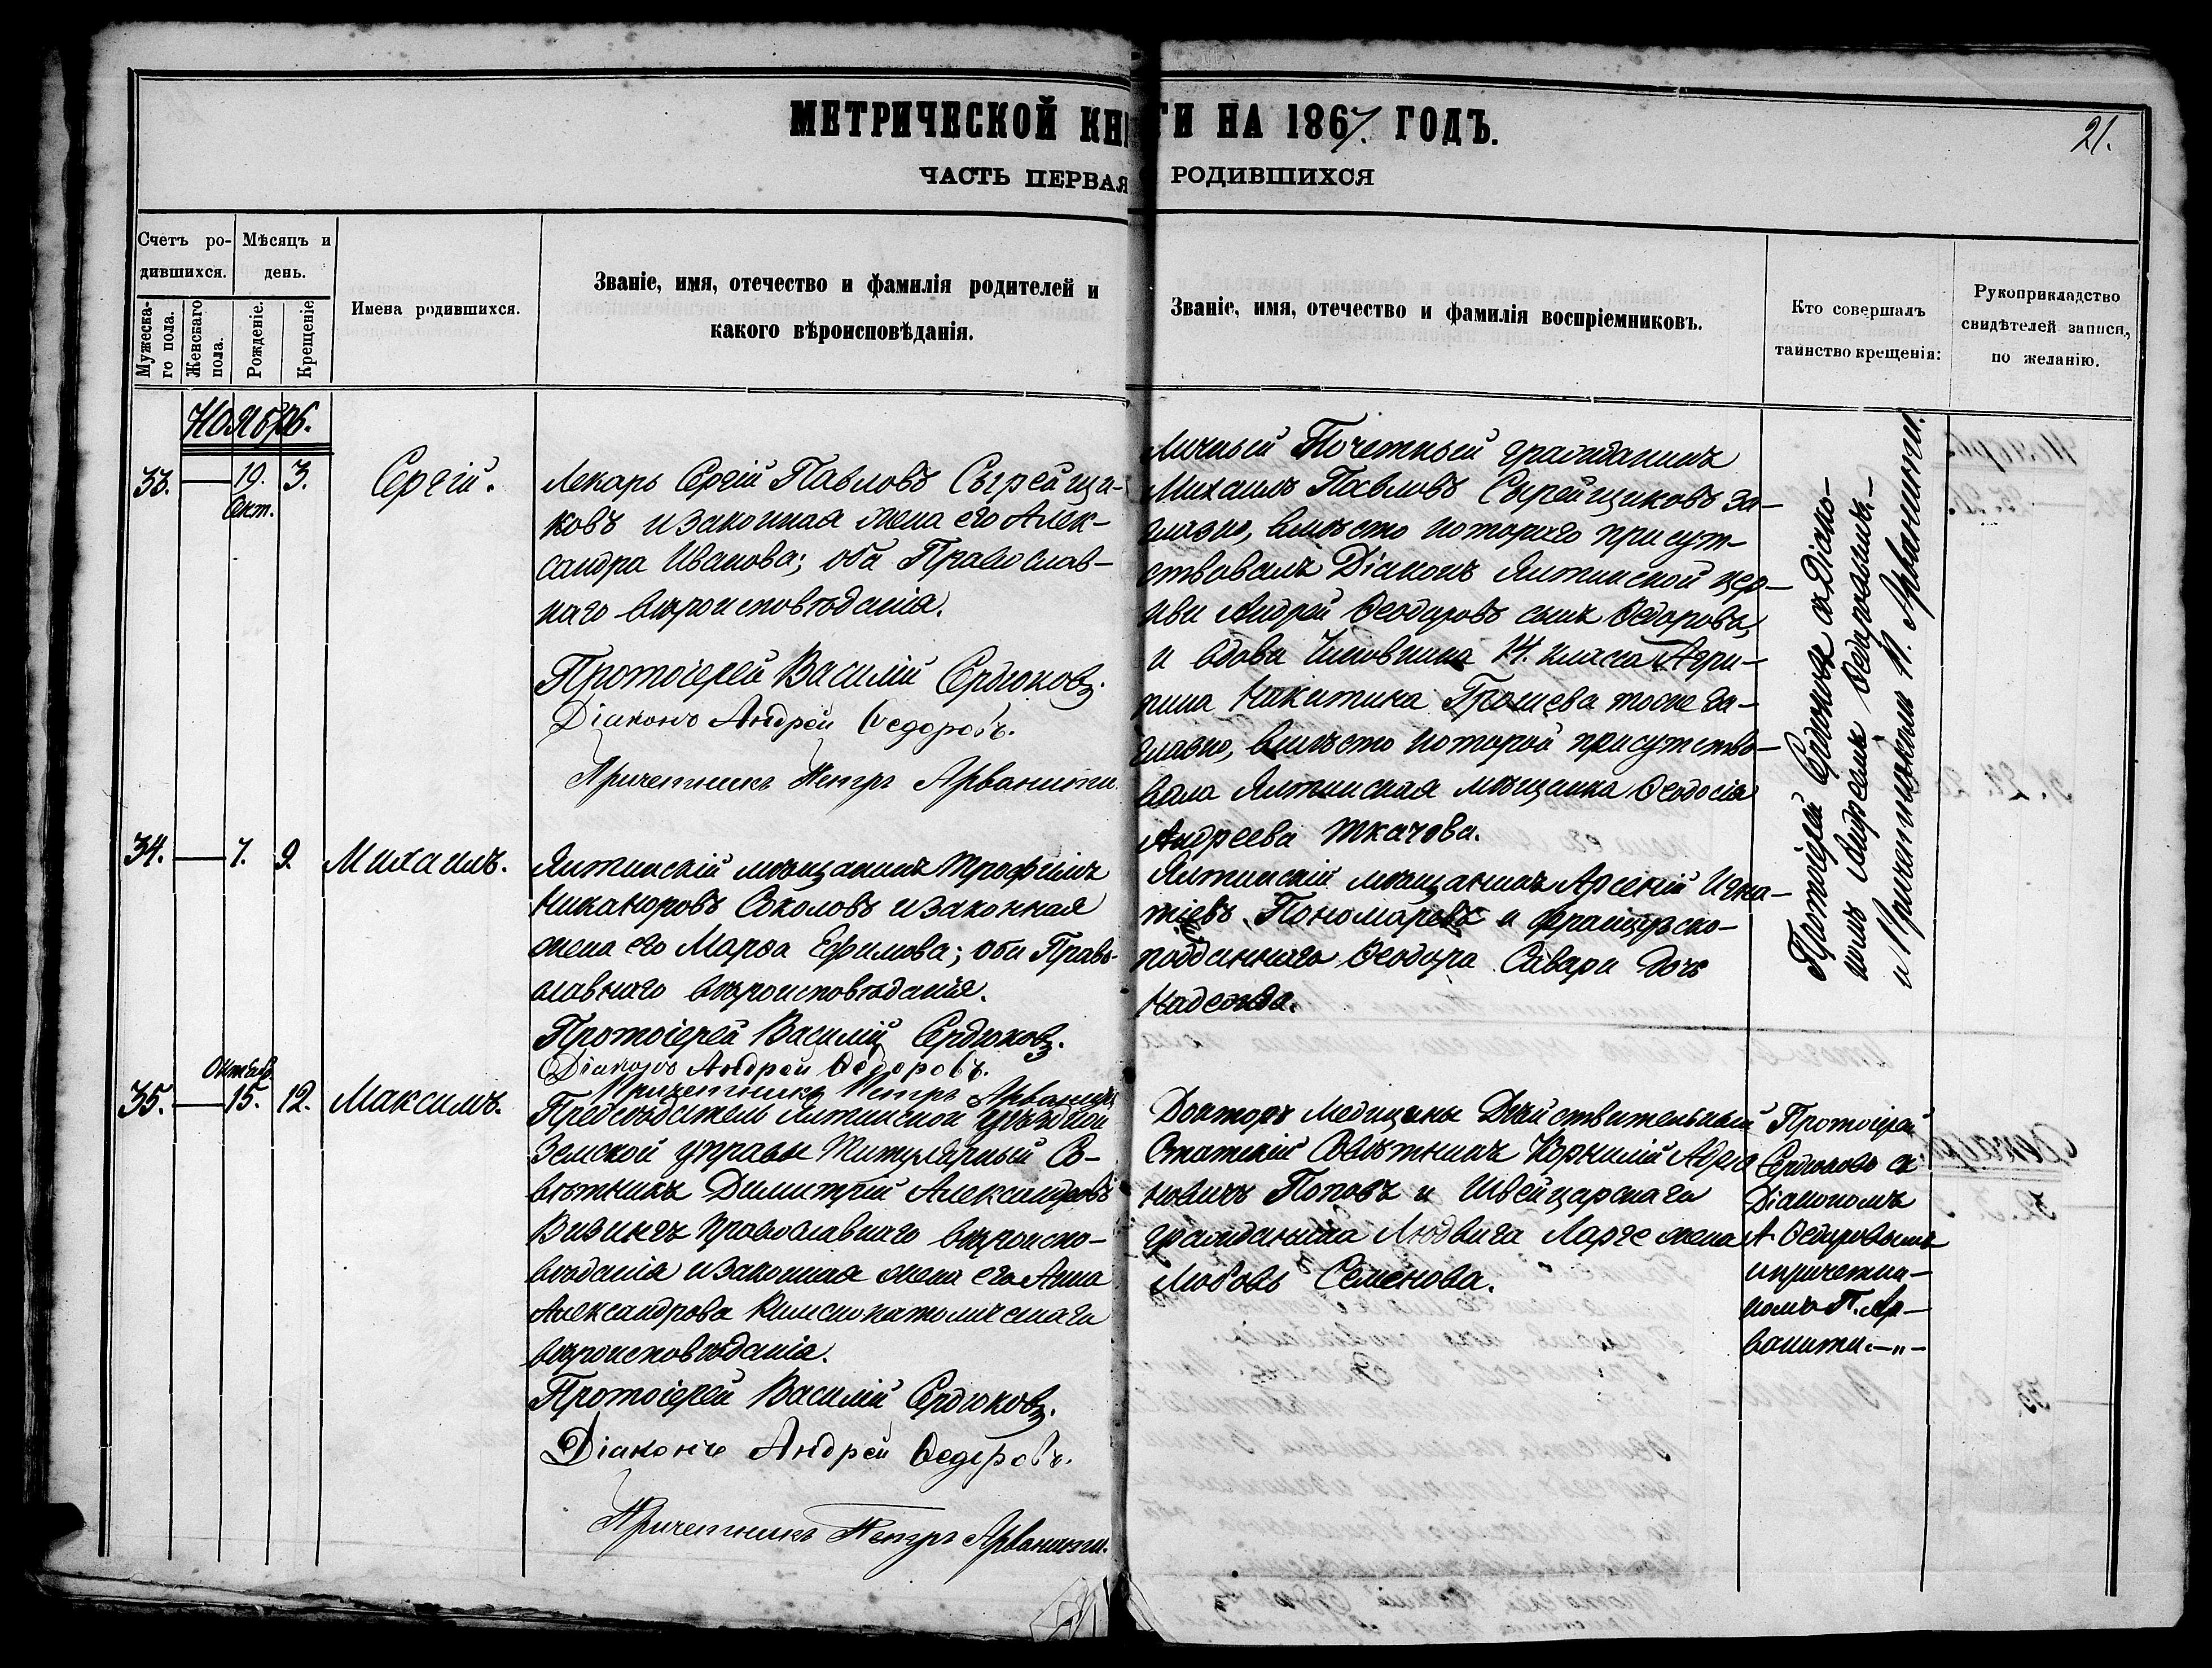 МЕТРИЧЕСКОЙ КНИГИ НА 1867. ГОДЪ.
21.
ЧАСТЬ ПЕРВАЯ РОДИВШИХСЯ
Счетъ ро-
дившихся.
Мужеска-
го пола.
Женскаго
пола.
Мѣсяцъ и
день.
Рожденіе.
Крещеніе
Имена родившихся.
Званіе, имя, отечество и фамилія родителей и
какого вѣроисповѣданія.
Званіе, имя, отечество и фамилія воспріемниковъ.
Кто совершалъ
таинство крещенія:
Рукоприкладство
свидѣтелей записи,
по желанію.
Ноябрь.
33. — 19. 3.
Окт.
Сергій.
Лекарь Сергій Павловъ Сырейщи-
ковъ и законная жена его Алек-
сандра Иванова; оба Православ-
наго вѣроисповѣданія.
Протоіерей Василій Сердюковъ.
Діаконъ Андрей Ѳедоровъ.
Причетникъ Петръ Арванити.
Личный Почетный гражданинъ
Михаилъ Павловъ Сырейщиковъ за-
глазно, вмѣсто котораго присут-
ствовалъ Діаконъ Ялтинской цер-
кви Андрей Ѳеодоровъ сынъ Ѳедоровъ,
и вдова Чиновника 14. класса Агри-
пина Никитина тоже за-
глазно, вмѣсто которой присутство-
вала Ялтинская мѣщанка Ѳеодосія
Андреева Ткачова.
Протоіерей Сердюковъ съ Діако-
номъ Андреемъ Ѳедоровымъ.—
и Причетникомъ П. Арванити.
34. — 7. 9
Михаилъ.
Ялтинскій мѣщанинъ Трофимъ
Никаноровъ Соколовъ и законная
жена его Марѳа Ефимова; оба Право-
славнаго вѣроисповѣданія.
Протоіерей Василій Сердюковъ.
Діаконъ Андрей Ѳедоровъ.
Причетникъ Петръ Арванити
Ялтинскій мѣщанинъ Арсеній Игна-
тіевъ Пономаревъ и французско-
подданнаго Ѳеодора Савари дочь
Надежда.
Октяб.
35. — 15. 12.
Максимъ.
Предсѣдатель Ялтинской уѣздной
Земской управы Титулярный Со-
вѣтникъ Димитрій Александровъ
Визингъ Православнаго вѣроиспо-
вѣданія и законная жена его Анна
Александрова Римскокатолическаго
вѣроисповѣданія.
Протоіерей Василій Сердюковъ.
Діаконъ Андрей Ѳедоровъ.
Причетникъ Петръ Арванити.
Докторъ Медицины Дѣйствительный
Статскій Совѣтникъ Корнилій
Поповъ и Швейцарскаго
гражданина Людвига Ларге жена
Любовь Семенова.
Протоіерей
Сердюковъ съ
Діакономъ
А. Ѳедоровымъ
и причетни-
комъ П. Ар-
ванити.—"—